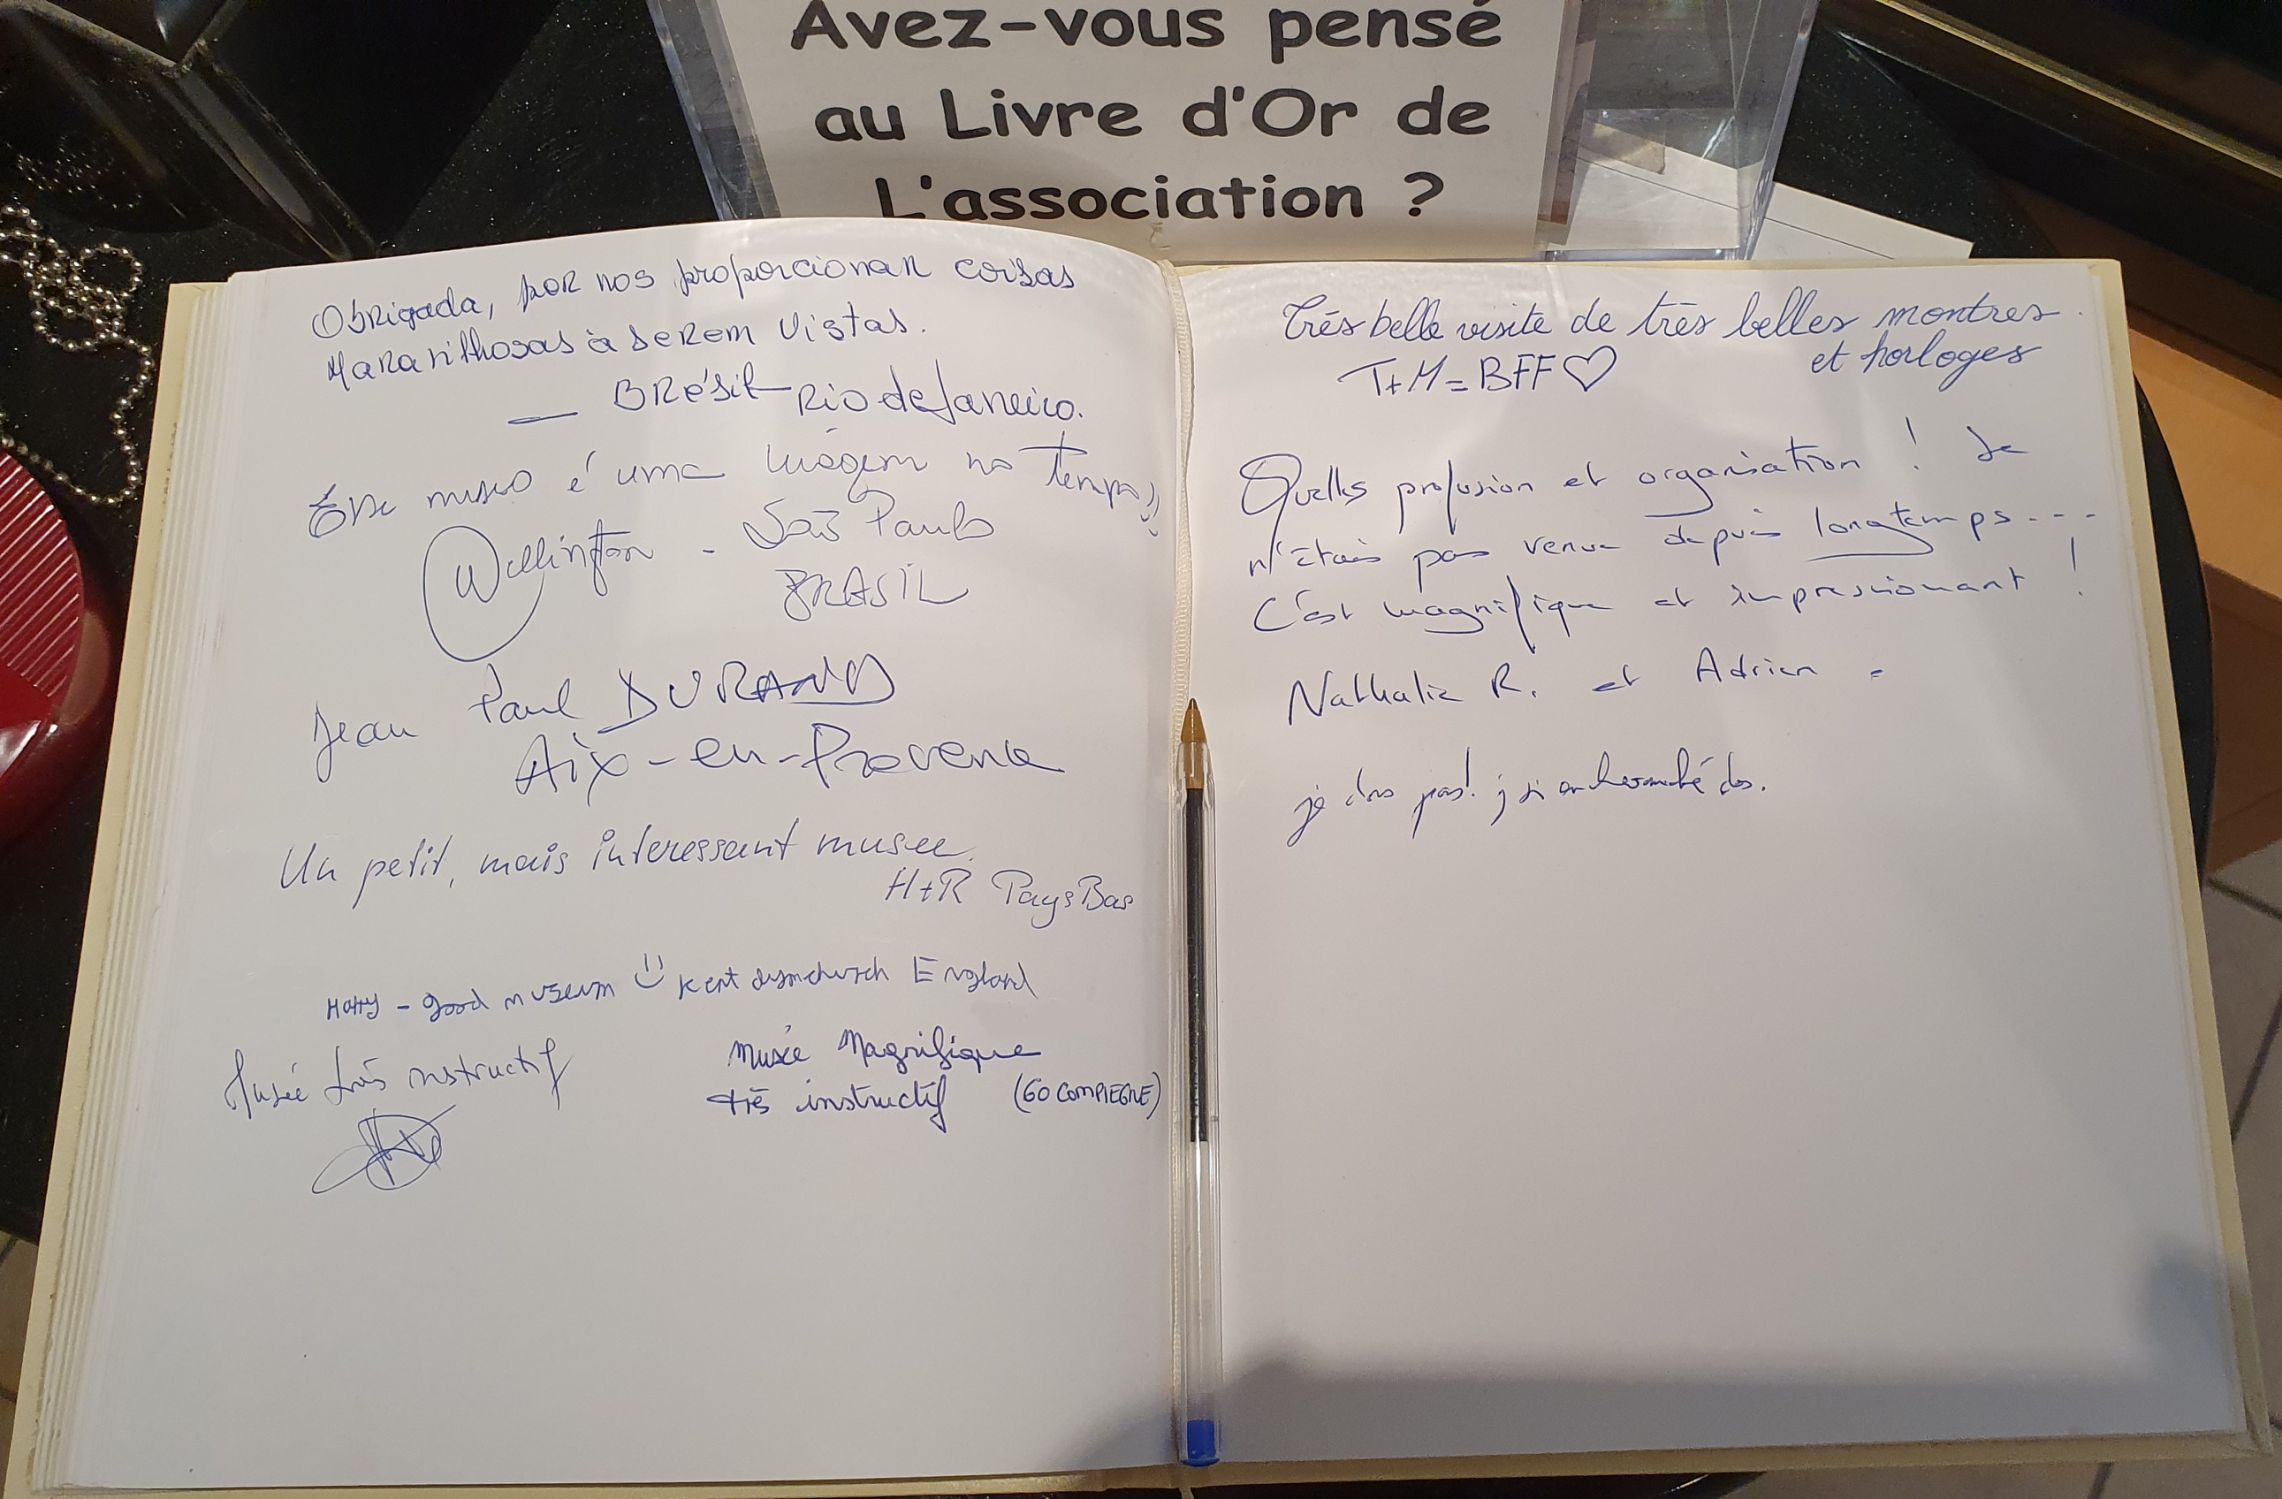 Avez-vous pensé
au Livre d'Or de
L'association ?
Obrigada, por nos proporcionar coisas
Maravilhosas à serem vistas.
— Brésil Rio de Janeiro.
Esse museo é uma no Tempo!!
Wellington - São Paulo
BRASIL
Jean Paul DURAND
Aix-en-Provence
Un petit, mais interessant musee.
H+R Pays Bas
Harry - good museum Kent dymchurch England
Musée très instructif
Musée Magnifique
très instructif (60 COMPIEGNE)
Très belle visite de très belles montres
et horloges
T+M=BFF♡
Quelles profusion et organisation ! Je
n'étais pas venue depuis longtemps...
C'est magnifique et impressionant !
Nathalie R. et Adrien
je dors pas!